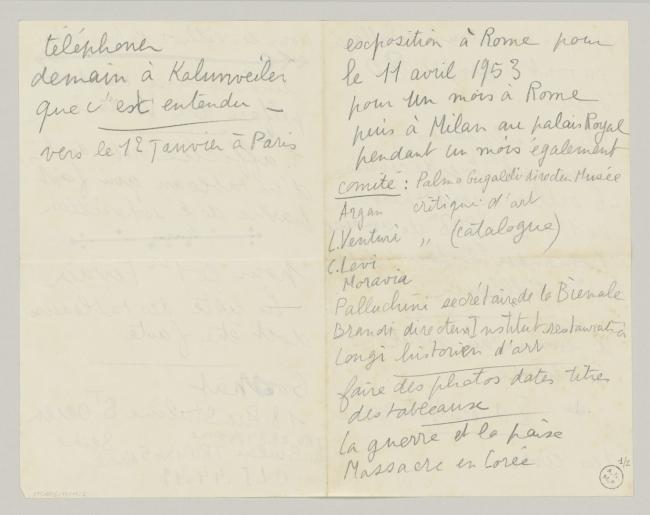 téléphoner
demain à Kahnweiler
que c'est entendu —
vers le 12 Janvier à Paris
exposition à Rome pour
le 11 avril 1953
pour un mois à Rome
puis à Milan au palais Royal
pendant un mois également
comité : Palma Bugaldi directeu Musée
Argan critique d'art
L. Venturi ,, (catalogue)
C. Levi
Moravia
Palluchini secrétaire de la Biennale
Brandi directeur Institut restauration
Longi historien d'art
faire des photos dates titres
des tableaux
La guerre et la paise
Massacre en Corée
1/2